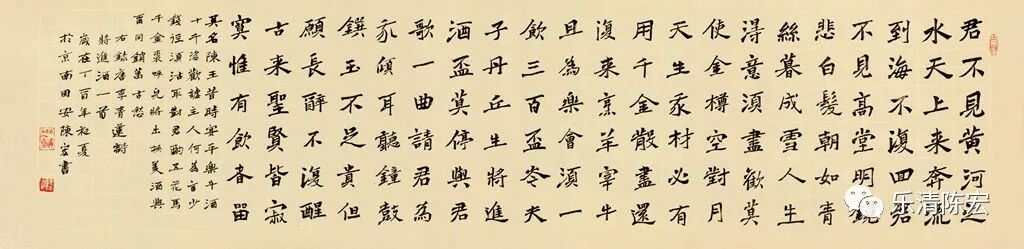 君不見黃河之
水天上来奔流
到海不復回君
不見高堂明鏡
悲白髮朝如青
絲暮成雪人生
得意須盡歡莫
使金樽空對月
天生我材必有
用千金散盡還
復來烹羊宰牛
且為樂會須一
飲三百盃岑夫
子丹丘生將進
酒盃莫停與君
歌一曲請君為
我傾耳聽鐘鼓
饌玉不足貴但
願長醉不復醒
古来聖賢皆寂
寞惟有飲者留
其名陳王昔時宴平樂斗酒
十千恣歡謔主人何為言少
錢徑須沽取對君酌五花馬
千金裘呼兒將出換美酒與
爾同銷萬古愁
右錄唐李青蓮詩
將進酒一首
歲在丁酉年初夏
於京南田安陳宏書
乐清陈宏